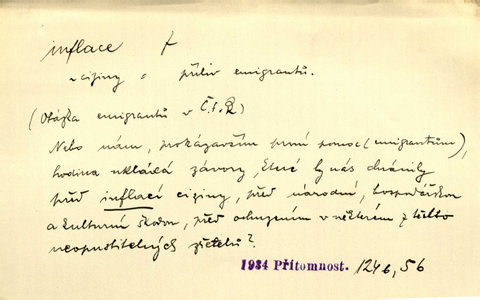 inflace †
ciziny = příliv emigrantů.
(Otázka emigrantů v Č.S.R)
Nebo nám, prokázavším první pomoc (emigrantům),
hodina ukládá závory, které by nás chránily
před inflací ciziny, před národní, hospodářskou
a kulturní škodou, před ohrožením v některém z těchto
neopustitelných zřetelů?
1934 Přítomnost. 124 b, 56